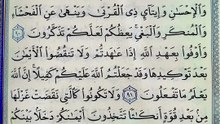 وَٱلْإِحْسَٰنِ وَإِيتَآيِٕ ذِى ٱلْقُرْبَىٰ وَيَنْهَىٰ عَنِ ٱلْفَحْشَآءِ
وَٱلْمُنكَرِ وَٱلْبَغْىِ يَعِظُكُمْ لَعَلَّكُمْ تَذَكَّرُونَ ٩٠
وَأَوْفُوا۟ بِعَهْدِ ٱللَّهِ إِذَا عَٰهَدتُّمْ وَلَا تَنقُضُوا۟ ٱلْأَيْمَٰنَ
بَعْدَ تَوْكِيدِهَا وَقَدْ جَعَلْتُمُ ٱللَّهَ عَلَيْكُمْ كَفِيلًا إِنَّ ٱللَّهَ
يَعْلَمُ مَا تَفْعَلُونَ ٩١ وَلَا تَكُونُوا۟ كَٱلَّتِى نَقَضَتْ غَزْلَهَا
مِنۢ بَعْدِ قُوَّةٍ أَنكَٰثًا تَتَّخِذُونَ أَيْمَٰنَكُمْ دَخَلًۢا بَيْنَكُمْ